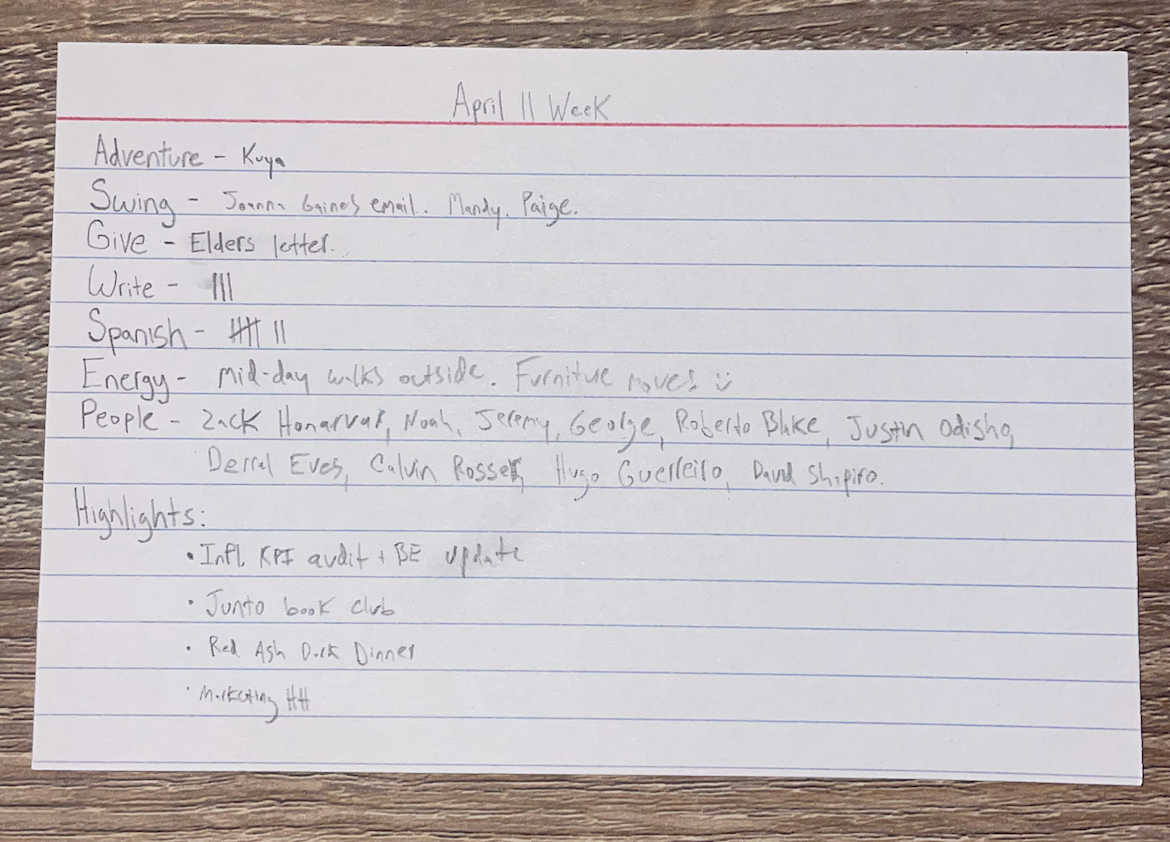 April 11 Week
Adventure - Kuya
Swing - Joanna Gaines email. Mandy. Paige.
Give - Elders letter.
Write - |||
Spanish - 卌 ||
Energy - Mid-day walks outside. Furniture moves :)
People - Zack Honarvar, Noah, Jeremy, George, Roberto Blake, Justin Odisho,
Derral Eves, Calvin Rosser, Hugo Guerreiro, David Shapiro.
Highlights:
• Infl. KPI audit + BE update
• Junto book club
• Red Ash Dinner
• Marketing HH